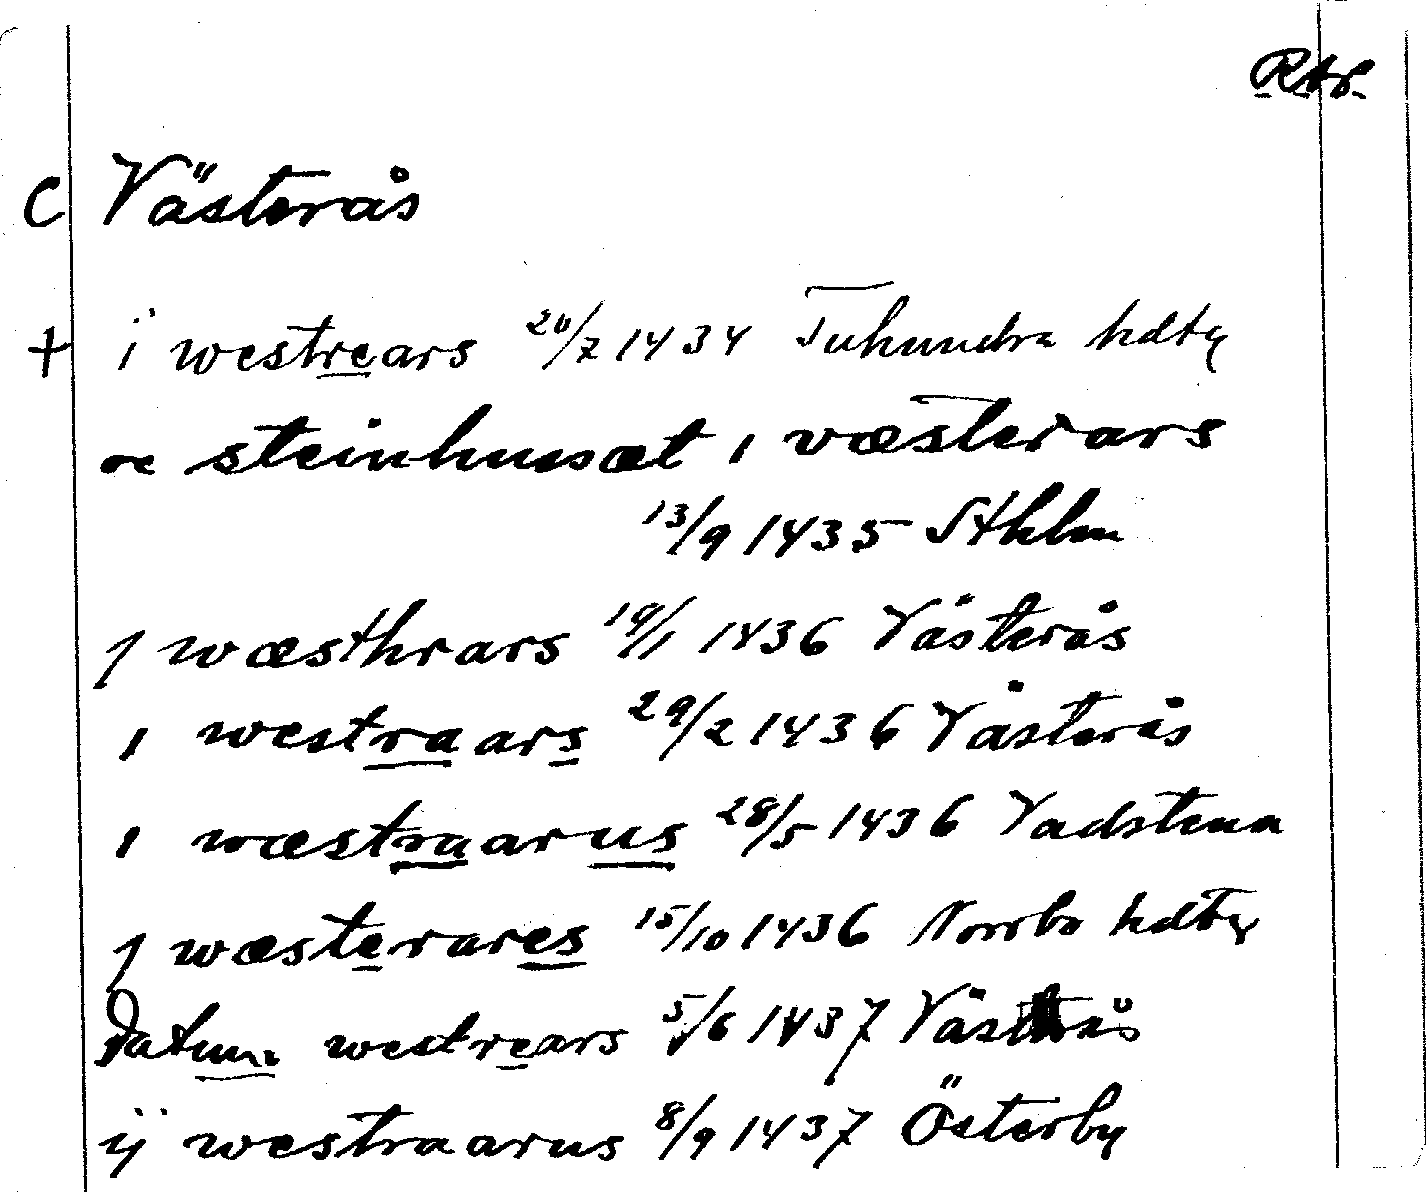 RAP.
C Västerås
+ i westrears 20/7 1434 Tuhundra hdtg
oc steinhussæt i væsterars
13/9 1435 Sthlm
j wæsthrars 19/1 1436 Västerås
i westraars 29/2 1436 Västerås
i wæstraarus 28/5 1436 Vadstena
j wæsterares 15/10 1436 Norrbo hdtg
Datum westrears 5/6 1437 Västerås
ij westraarus 8/9 1437 Österby